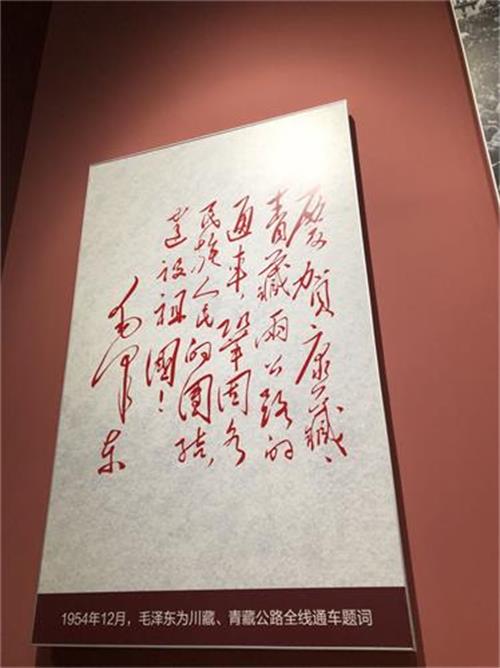 慶賀康藏、
青藏兩公路的
通車，鞏固各
民族人民的團結，
建設祖國！
毛澤东
1954年12月，毛泽东为川藏、青藏公路全线通车题词